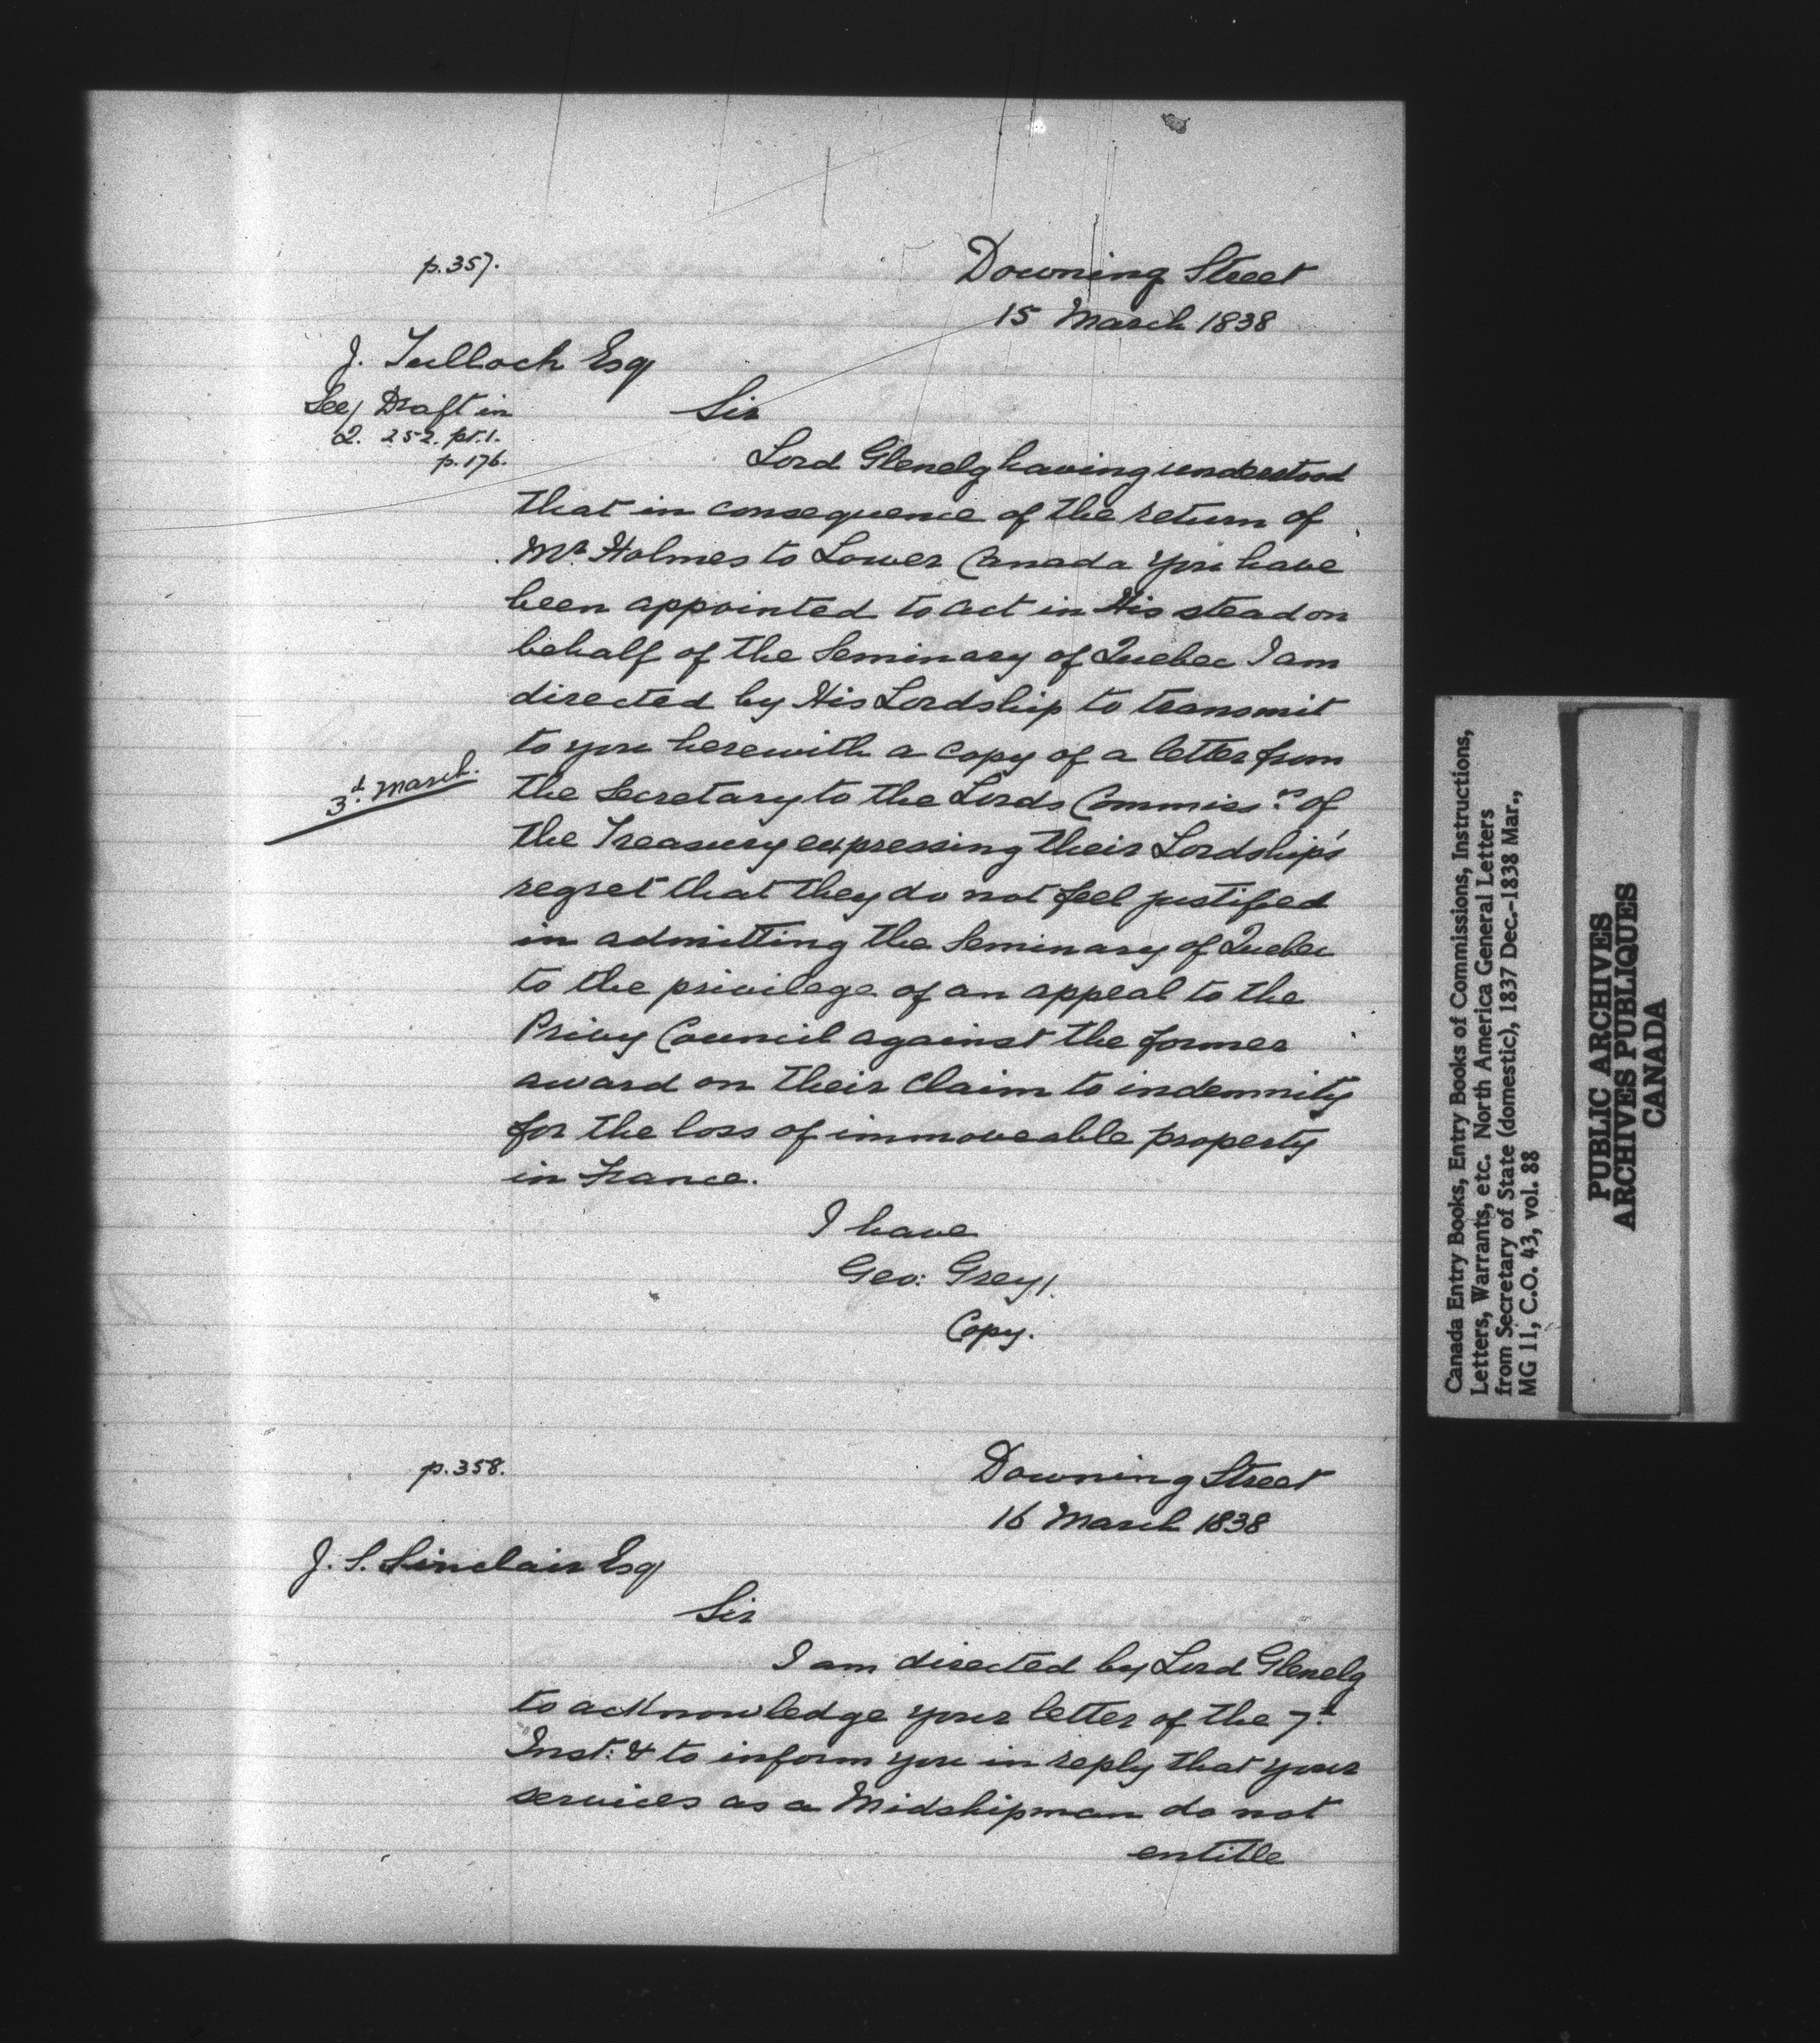 p.357.
Downing Street
15 March 1838
J. Tulloch Esq
See/ Draft in
Q. 252. pt.1.
p.176.
Sir
Lord Glenelg having understood
that in consequence of the return of
Mr. Holmes to Lower Canada you have
been appointed to act in His stead on
behalf of the Seminary of Quebec I am
directed by His Lordship to transmit
to you herewith a copy of a letter from
3d. March.
the Secretary to the Lords Commissrs. of
the Treasury expressing their Lordships'
regret that they do not feel justified
in admitting the Seminary of Quebec
to the privilege of an appeal to the
Privy Council against the former
award on their claim to indemnity
for the loss of immoveable property
in France.
I have
Geo: Grey/.
Copy.
p.358.
Downing Street
16 March 1838
J. S. Sinclair Esq
Sir
I am directed by Lord Glenelg
to acknowledge your letter of the 7th
Inst: & to inform you in reply that your
services as a Midshipman do not
entitle
Canada Entry Books, Entry Books of Commissions, Instructions,
Letters, Warrants, etc. North America General Letters
from Secretary of State (domestic), 1837 Dec.-1838 Mar.,
MG 11, C.O. 43, vol. 88
PUBLIC ARCHIVES
ARCHIVES PUBLIQUES
CANADA